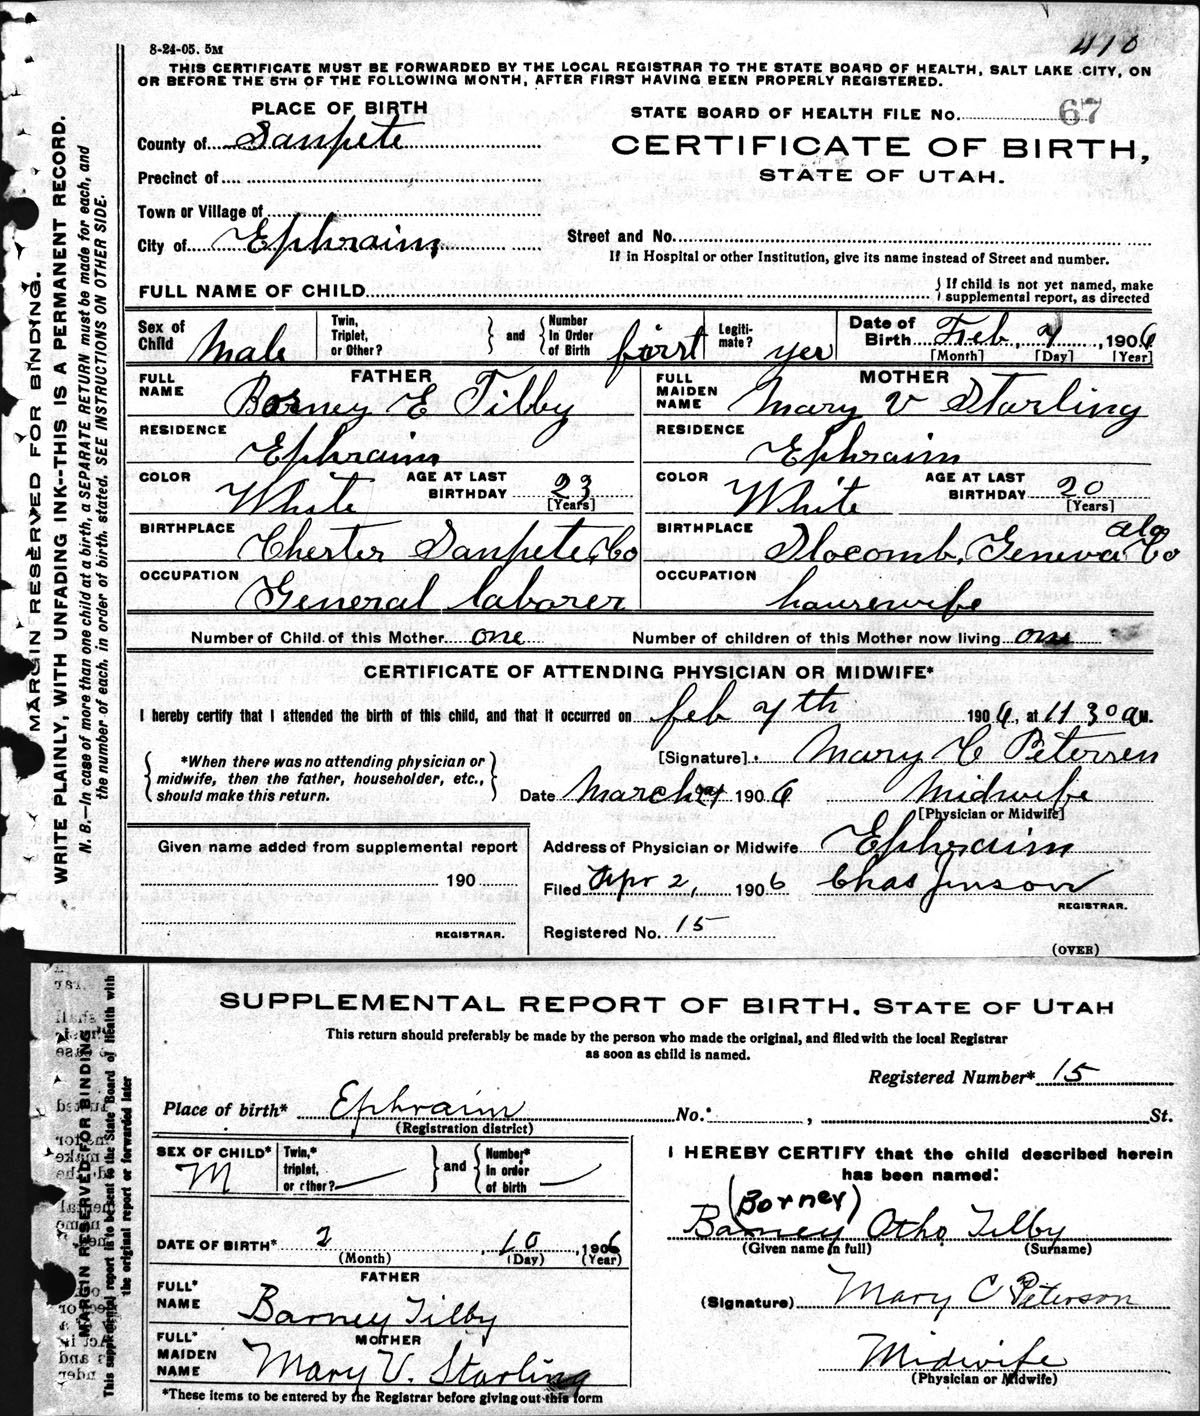 410
8-24-05. 5M
THIS CERTIFICATE MUST BE FORWARDED BY THE LOCAL REGISTRAR TO THE STATE BOARD OF HEALTH, SALT LAKE CITY, ON
OR BEFORE THE 5TH OF THE FOLLOWING MONTH, AFTER FIRST HAVING BEEN PROPERLY REGISTERED.
MARGIN RESERVED FOR BINDING.
WRITE PLAINLY, WITH UNFADING INK--THIS IS A PERMANENT RECORD.
N. B.—In case of more than one child at a birth, a SEPARATE RETURN must be made for each, and
the number of each, in order of birth, stated. SEE INSTRUCTIONS ON OTHER SIDE.
PLACE OF BIRTH
County of Sanpete
Precinct of
Town or Village of
City of Ephraim
STATE BOARD OF HEALTH FILE No. 67
CERTIFICATE OF BIRTH,
STATE OF UTAH.
Street and No.
If in Hospital or other Institution, give its name instead of Street and number.
FULL NAME OF CHILD { If child is not yet named, make
supplemental report, as directed
Sex of Child Male
Twin, Triplet, or Other? } and { Number In Order of Birth first
Legiti- mate? yes
Date of Birth Feb, 7, 1906
[Month] [Day] [Year]
FATHER
FULL NAME Barney E Tilby
RESIDENCE Ephraim
COLOR White AGE AT LAST BIRTHDAY 23
[Years]
BIRTHPLACE Chester Sanpete Co
OCCUPATION General laborer
MOTHER
FULL MAIDEN NAME Mary V Starling
RESIDENCE Ephraim
COLOR White AGE AT LAST BIRTHDAY 20
[Years]
BIRTHPLACE Slocomb, Geneva Co ala
OCCUPATION housewife
Number of Child of this Mother one Number of children of this Mother now living one
CERTIFICATE OF ATTENDING PHYSICIAN OR MIDWIFE*
I hereby certify that I attended the birth of this child, and that it occurred on feb 7th 1906, at 11 30 a M.
*When there was no attending physician or
midwife, then the father, householder, etc.,
should make this return.
[Signature] Mary C Petersen
Date March 1906 Midwife
[Physician or Midwife]
Given name added from supplemental report
190
REGISTRAR.
Address of Physician or Midwife Ephraim
Filed Apr 2, 1906 Chas Jenson
REGISTRAR.
Registered No. 15
(OVER)
MARGIN RESERVED FOR BINDING
This supplemental report is to be sent to the State Board of Health with
the original report or forwarded later
SUPPLEMENTAL REPORT OF BIRTH, STATE OF UTAH
This return should preferably be made by the person who made the original, and filed with the local Registrar
as soon as child is named.
Registered Number* 15
Place of birth* Ephraim No. , St.
(Registration district)
SEX OF CHILD* M
Twin,* triplet, or other? } and { Number* in order of birth
DATE OF BIRTH* 2, 10, 1906
(Month) (Day) (Year)
FATHER
FULL* NAME Barney Tilby
MOTHER
FULL* MAIDEN NAME Mary V. Starling
*These items to be entered by the Registrar before giving out this form
I HEREBY CERTIFY that the child described herein
has been named:
(Borney)
Barney Otho Tilby
(Given name in full) (Surname)
(Signature) Mary C Peterson
Midwife
(Physician or Midwife)